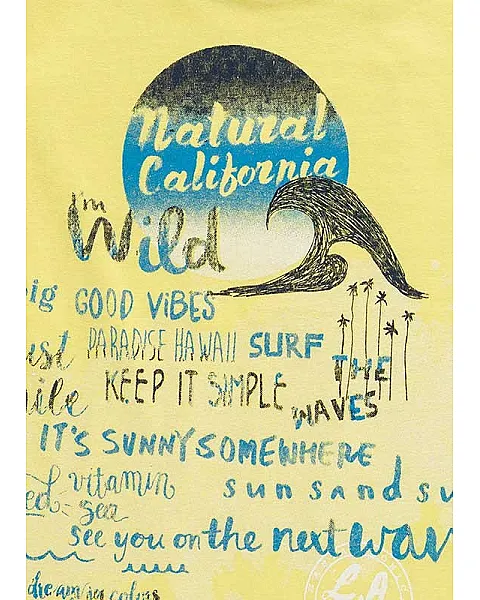 Natural
California
I'm
Wild
ig GOOD VIBES
PARADISE HAWAII SURF THE
KEEP IT SIMPLE WAVES
IT'S SUNNY SOMEWHERE
vitamin
sea
sun sand su
see you on the next wav
dreaming in colors
LA